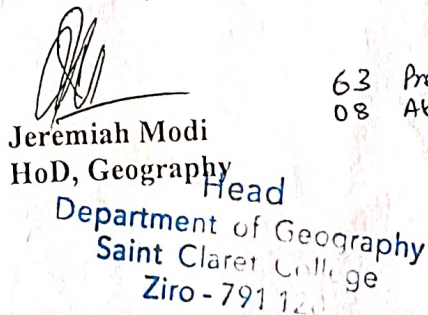 63 Pr
08 Ab
Jeremiah Modi
HoD, Geography
Head
Department of Geography
Saint Claret College
Ziro - 791 12